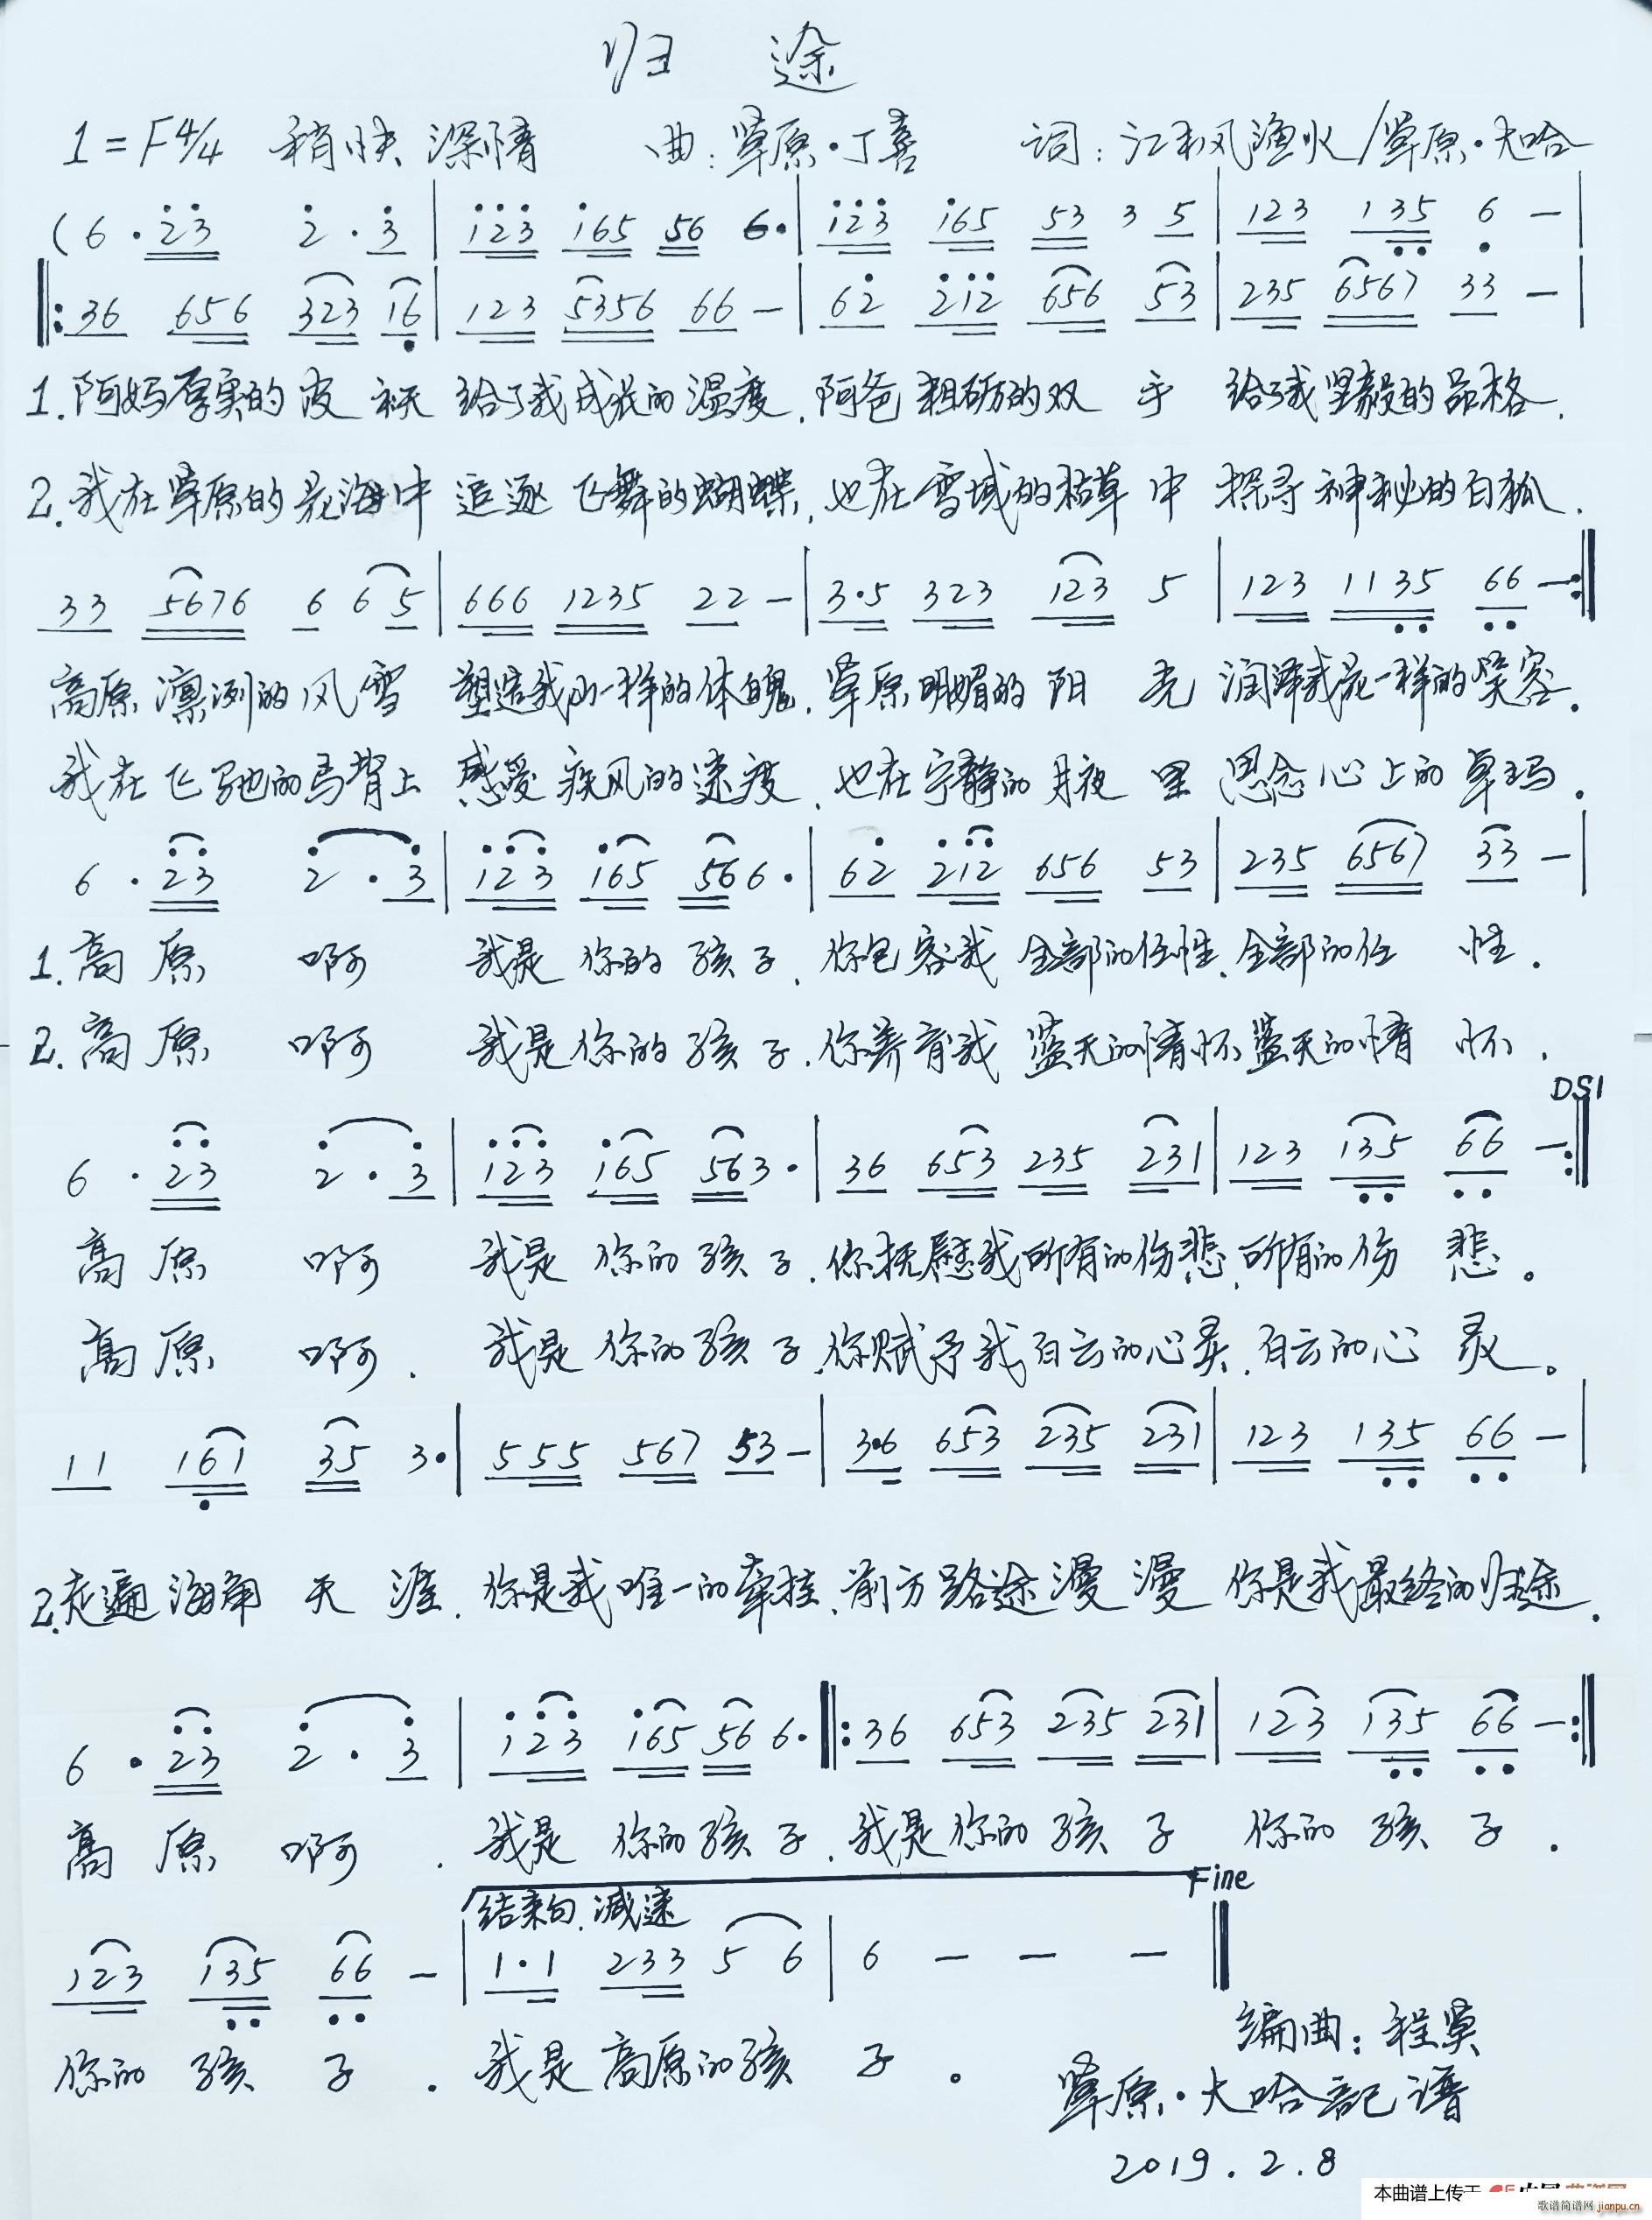 归 途
1=F4/4 稍快 深情 曲:草原·丁喜 词:江枫渔火/草原·大哈
(6·23 2·3 | 123 165 56 6· | 123 165 53 3 5 | 123 135 6 - |
‖:36 656 323 16 | 123 5356 66 - | 62 212 656 53 | 235 6567 33 - |
1.阿妈厚实的皮袄 给了我成长的温度,阿爸粗砺的双手 给了我坚毅的品格.
2.我在草原的花海中 追逐飞舞的蝴蝶,也在雪域的枯草中 探寻神秘的白狐.
33 5676 6 6 5 | 666 1235 22 - | 3·5 323 123 5 | 123 1135 66 - :‖
高原凛冽的风雪 塑造我山一样的体魄,草原明媚的阳光 润泽我花一样的笑容.
我在飞驰的马背上 感受疾风的速度,也在宁静的月夜里 思念心上的卓玛.
6·23 2·3 | 123 165 56 6· | 62 212 656 53 | 235 6567 33 - |
1.高原 啊 我是你的孩子,你包容我全部的任性,全部的任性.
2.高原 啊 我是你的孩子,你养育我蓝天的情怀 蓝天的情怀.
DS1
6·23 2·3 | 123 165 563· | 36 653 235 231 | 123 135 66 - :‖
高原 啊 我是你的孩子,你抚慰我所有的伤悲,所有的伤悲。
高原 啊. 我是你的孩子,你赋予我白云的心灵,白云的心灵。
11 161 35 3· | 555 567 53 - | 3·6 653 235 231 | 123 135 66 - |
2.走遍海角天涯,你是我唯一的牵挂,前方路途漫漫 你是我最终的归途.
6·23 2·3 | 123 165 56 6· ‖:36 653 235 231 | 123 135 66 - :‖
高原 啊. 我是你的孩子,我是你的孩子 你的孩子.
结束句.减速 Fine
123 135 66 - | 1·1 233 5 6 | 6 - - - ‖
你的孩子. 我是高原的孩子。
编曲:程昊
草原·大哈記谱
2019.2.8
本曲谱上传于
歌谱简谱网 jianpu.cn